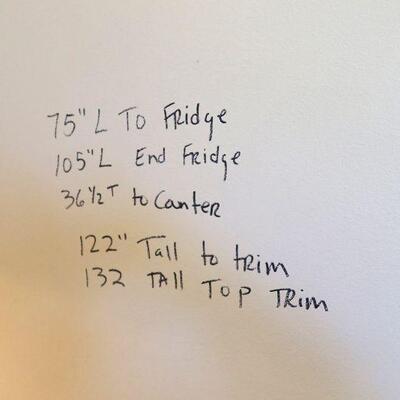 75" L To Fridge
105"L End Fridge
36 1/2 T to Canter
122" Tall to trim
132 TAll Top TRim